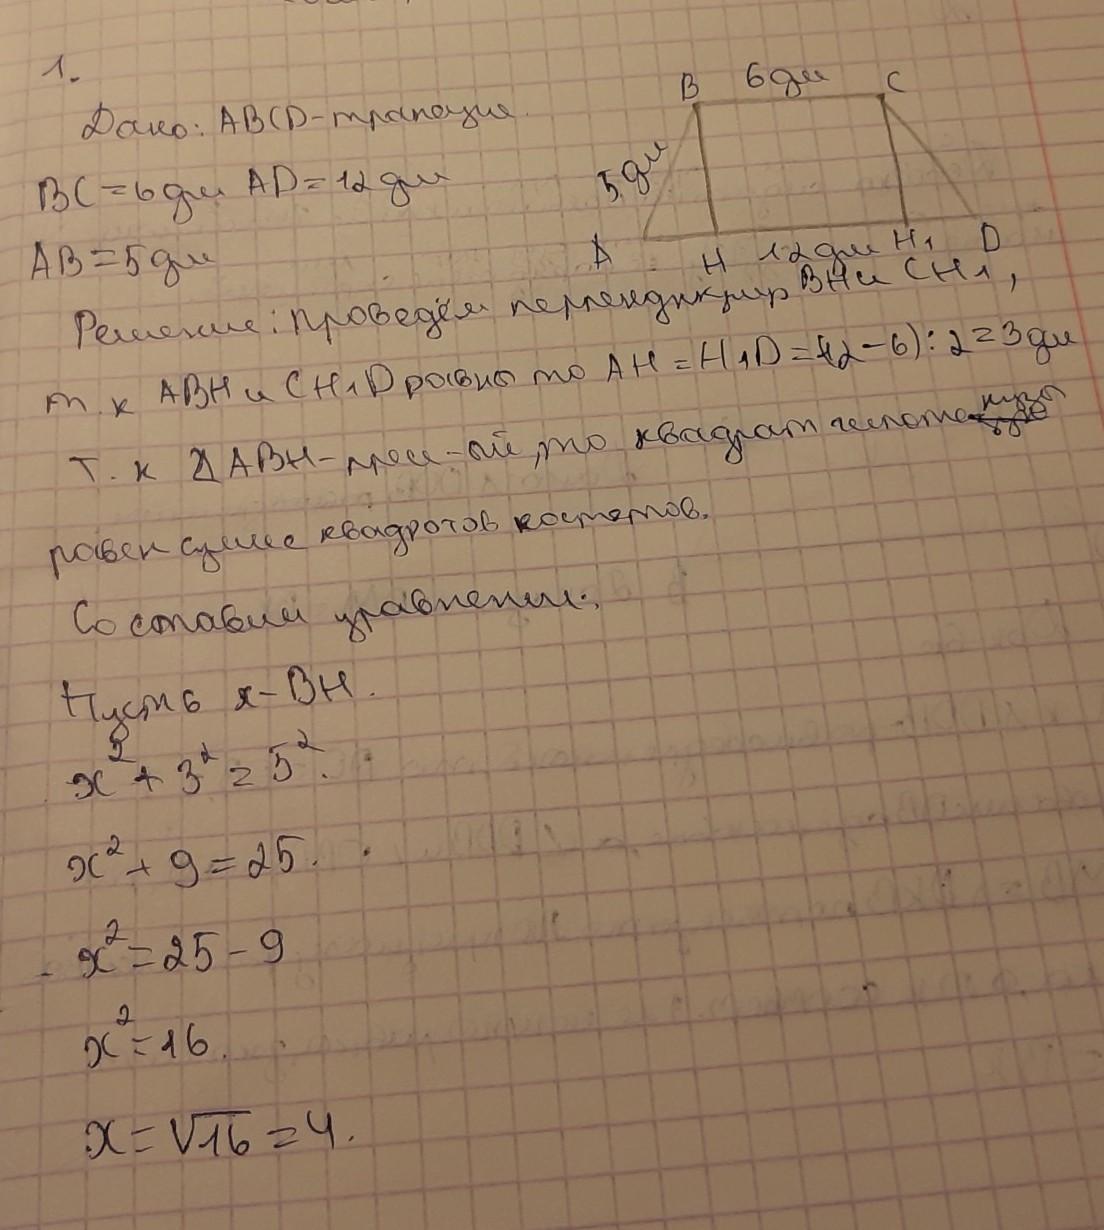 1.
Дано: ABCD-трапеция.
BC=6дм AD=12дм
AB=5дм
B 6дм C
5дм
A H 12дм H₁ D
Решение: проведём перпендикуляр BH и CH₁,
т.к ABH и CH₁D равно то AH=H₁D=(12-6):2=3дм
Т.к Δ ABH- -ый, то квадрат гипотенузы
равен сумме квадротов костетов.
Составим уравнении:
Пусть x-BH.
x²+3²=5².
x²+9=25.
x²=25-9
x²=16.
x=√16=4.